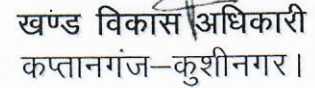 खण्ड विकास अधिकारी
कप्तानगंज–कुशीनगर।